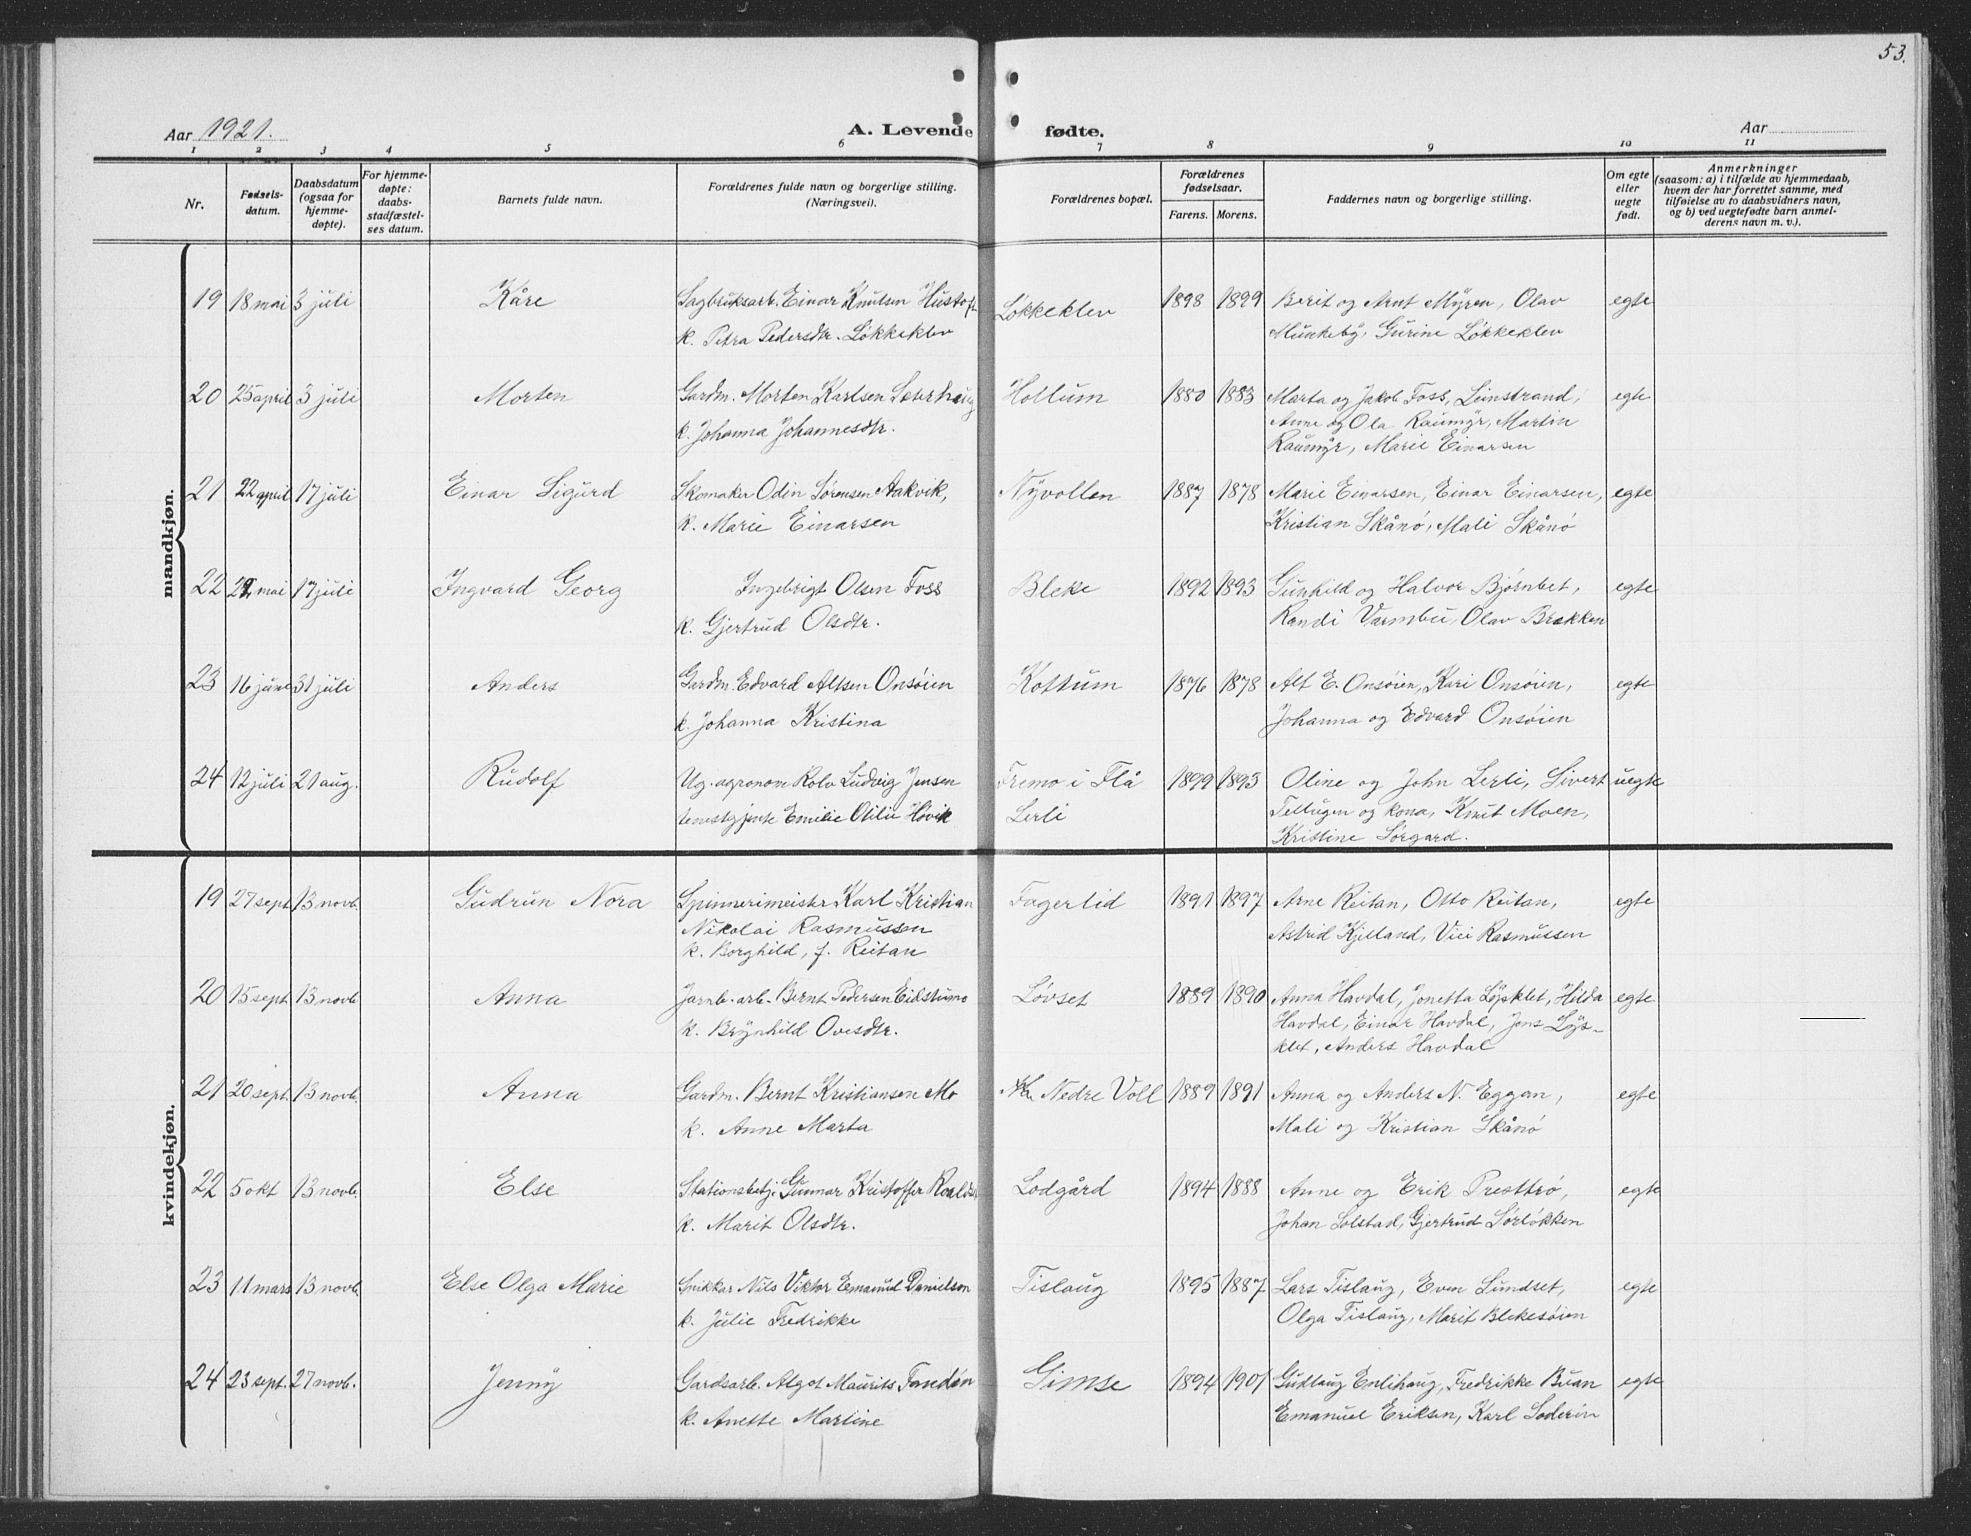 53.
Aar 1921. A. Levende fødte. Aar
1 2 3 4 5 6 7 8 9 10 11
Nr.
Fødsels-
datum.
Daabsdatum
(ogsaa for
hjemme-
døpte).
For hjemme-
døpte:
daabs-
stadfæstel-
ses datum.
Barnets fulde navn.
Forældrenes fulde navn og borgerlige stilling.
(Næringsvei).
Forældrenes bopæl.
Forældrenes
fødselsaar.
Farens. Morens.
Faddernes navn og borgerlige stilling.
Om egte
eller
uegte
født.
Anmerkninger
(saasom: a) i tilfælde av hjemmedaab,
hvem der har forrettet samme, med
tilføielse av to daabsvidners navn,
og b) ved uegtefødte barn anmel-
derens navn m. v.).
mandkjøn.
19 18 mai 3 juli Kåre Sagbruksarb. Einar Knutsen Løkkeklev 1898 1899 Berit og Arnt Myren, Olav egte
k. Petra Pedersdtr. Løkkeklev Munkeby, Gurine Løkkeklev
20 25 april 3 juli Morten Gardm. Morten Karlsen Hollum 1880 1883 Marta og Jakob Foss, Leinstrand, egte
k. Johanna Johannesdtr. Anne og Ola Raumyr, Martin
Raumyr, Marie Einarsen
21 22 april 17 juli Einar Sigurd Skomaker Odin Sørensen Aakvik, Nyvollen 1887 1878 Marie Einarsen, Einar Einarsen, egte
k. Marie Einarsen Kristian Skånø, Mali Skånø
22 mai 17 juli Ingvard Georg Ingebrigt Olsen Foss Bleke 1892 1893 Gunhild og Halvor Bjørnbet, egte
k. Gjertrud Olsdtr. Randi Varmbu, Olav Brekken
23 16 juni 31 juli Anders Gardm. Edvard Alfsen Onsøien Kottum 1876 1878 Alf E. Onsøien, Kari Onsøien, egte
k. Johanna Kristina Johanna og Edvard Onsøien
24 12 juli 21 aug. Rudolf Ug. agronom Rolv Ludvig Jensen Fremo i Flå 1899 1893 Oline og John Lerli, Sivert uegte
tenestgjente Emilie Otilie Høvik Lerli Teltugen og kona, Knut Moen,
Kristine Sørgard.
kvindekjøn.
19 27 sept. 13 novb. Gudrun Nora Spinnerimeister Karl Kristian Fagerlid 1891 1897 Arne Reitan, Otto Reitan, egte
Nikolai Rasmussen Astrid Kjelland, Vici Rasmussen
k. Borghild, f. Reitan
20 15 sept. 13 novb. Anna Jarnb. arb. Bernt Pedersen Løvset 1889 1890 Anna Havdal, Jonetta Løysklet, Hilda egte
k. Brynhild Ovesdtr. Havdal, Einar Havdal, Jens Løys-
klet, Anders Havdal
21 20 sept. 13 novb. Anna Gardm. Bernt Kristiansen Mo Nedre Voll 1889 1891 Anna og Anders N. Eggan, egte
k. Anne Marta Mali og Kristian Skånø
22 5 okt 13 novb. Else Stationsbetj. Gunnar Kristoffer Lodgård 1894 1888 Anne og Erik Presttrø, egte
k. Marit Olsdtr. Johan Solstad, Gjertrud Sørløkken
23 11 mars 13 novb. Else Olga Marie Snikkar Nils Viktor Emanuel Danielson Tislaug 1895 1887 Lars Tislaug, Even Lundset, egte
k. Julie Fredrikke Olga Tislaug, Marit Blekesøien
24 23 sept. 27 novb. Jenny Gardsarb. Algot Maurits Tandén Gimse 1894 1901 Gudlaug Enlihaug, Fredrikke Buan egte
k. Anette Martine Emanuel Eriksen, Karl Soderin